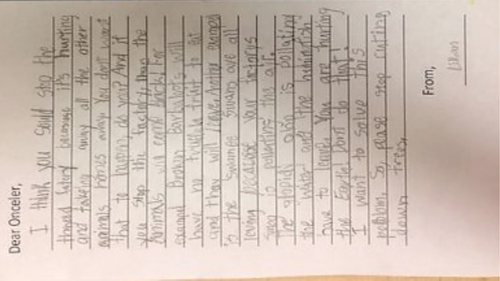 Dear Onceler,
I think you sould stop the
thneed fatory because it's hurting
and takeing away all the other
animals homes away. You don't want
that to happen, do you? And if
you stop the factory, then the
Animals will come back! For
exampel Brown Barbaloots will
have no truffula fruit to eat
and they will leave.
is the Swomee Swans are all
leving because your factorys
smog is polluting the air.
The gloppity glop is polluting
the water and the huminfish
have to leave! You are hurting
the Earth! Dont do that!
I want to solve this
problem. So, please stop cutting
down trees.
From,
Lilian